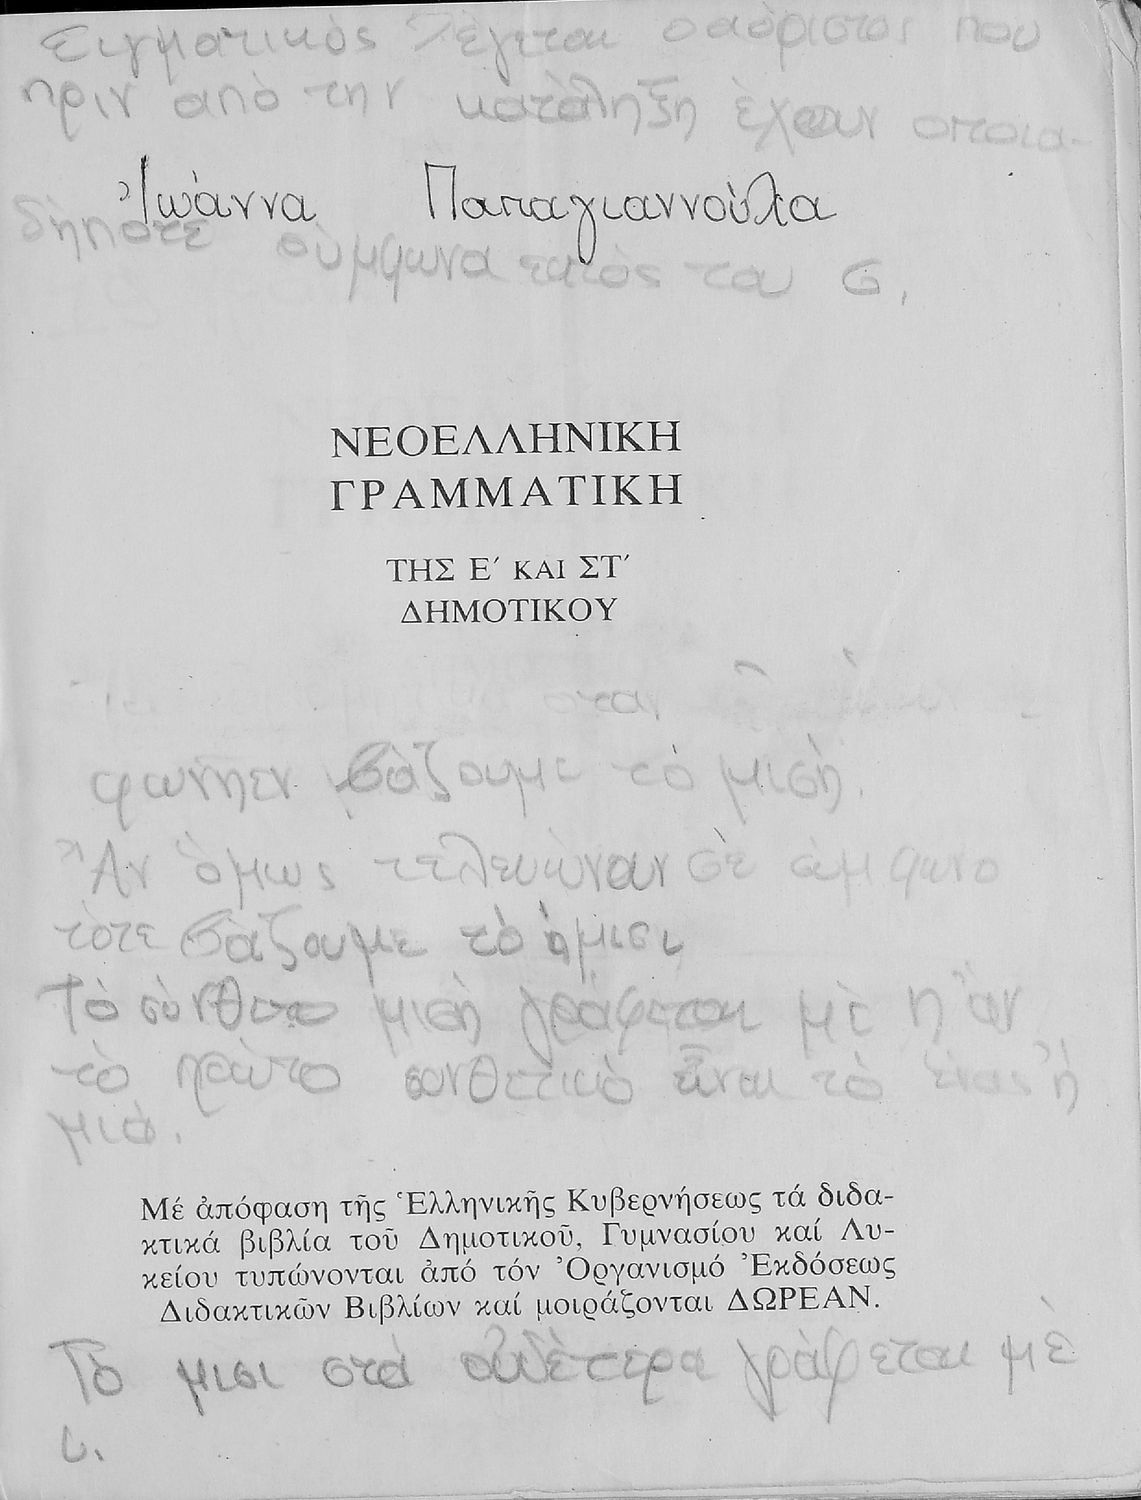 Σιγματικός λέγεται ο αόριστος που
πριν από την κατάληξη έχουν οποια-
Ἰωάννα Παπαγιαννούλα
δήποτε σύμφωνα εκτός του σ.
ΝΕΟΕΛΛΗΝΙΚΗ
ΓΡΑΜΜΑΤΙΚΗ
ΤΗΣ Ε΄ ΚΑΙ ΣΤ΄
ΔΗΜΟΤΙΚΟΥ
όταν
βάζουμε τό μισή.
Ἄν ὅμως τελειώνουν σέ σύμφωνο
τότε βάζουμε τό ήμισι
Τό σύνθετο μισή γράφεται μέ η ἄν
τό πρώτο συνθετικό εἶναι τό ένας ἤ
μιά.
Μέ ἀπόφαση τῆς Ἑλληνικῆς Κυβερνήσεως τά διδα-
κτικά βιβλία τοῦ Δημοτικοῦ, Γυμνασίου καί Λυ-
κείου τυπώνονται ἀπό τόν Ὀργανισμό Ἐκδόσεως
Διδακτικῶν Βιβλίων καί μοιράζονται ΔΩΡΕΑΝ.
Τό μισι στά οὐδέτερα γράφεται μέ
ι.